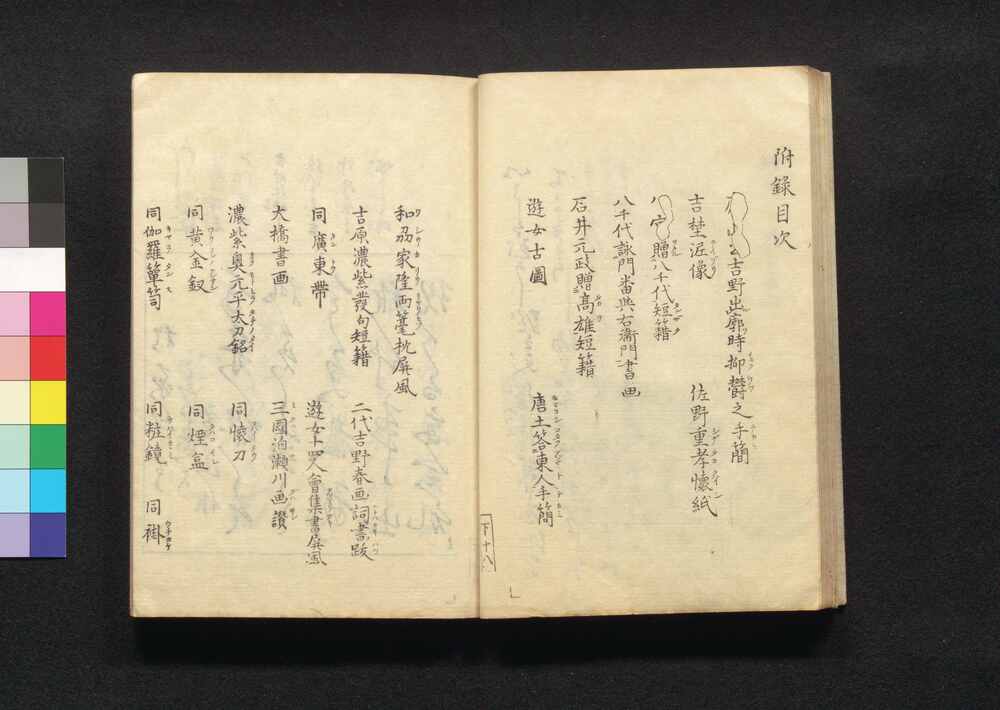 附録目次
吉野出廓時抑鬱之手簡
吉埜泥像 佐野重孝懐紙
贈八千代短籍
八千代詠門畨與右衛門書画
石井元政贈髙雄短籍
遊女古圖 唐土答東人手簡
下十八
和刕家隆両筆枕屏風
吉原濃紫發句短籍 二代吉野春画詞書跋
同廣東帶 遊女十四人會集書屏風
大橋書画 三國泊瀬川画讃
濃紫奥元平太刀銘 同懐刀
同黄金釵 同煙盒
同伽羅簞笥 同粧鏡 同褂